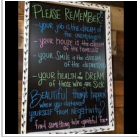 PLEASE REMEMBER:
-your job is the dream of
the unemployed
-your house is the dream
of the homeless
-your smile is the dream
of the depressed
-your health is the DREAM
of those who are SICK
Beautiful things happen
when you distance
yourself from negativity
find something to be grateful for!